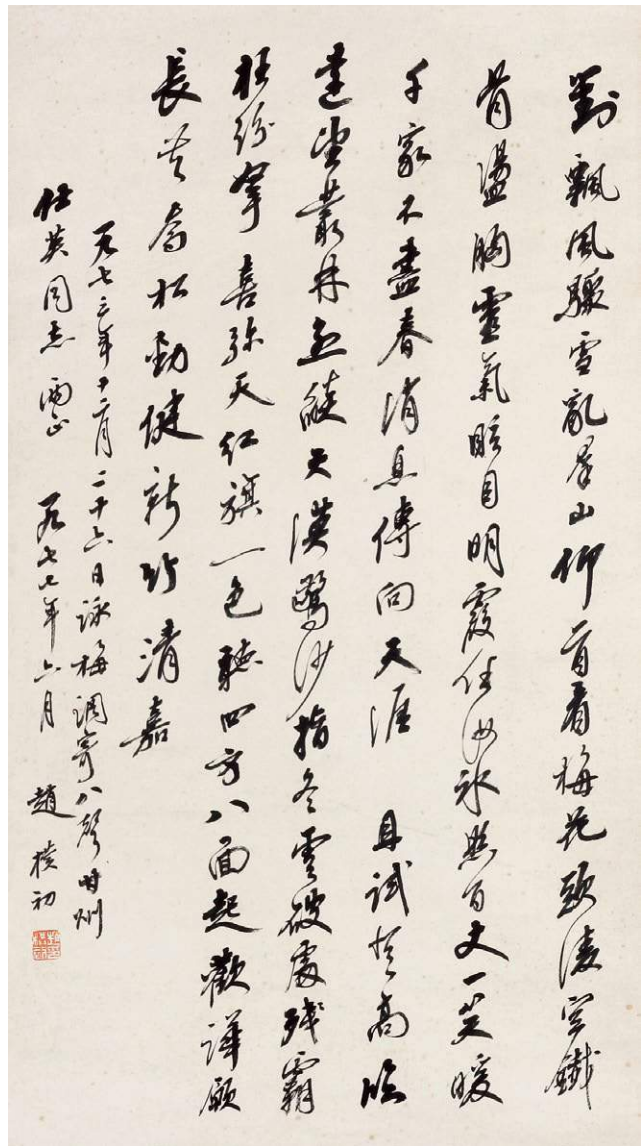 對飄風驟雪亂羣山仰首看梅花淩空鐵
骨盪胸靈氣眩目明霞任汝冰懸百丈一笑暖
千家不盡春消息傳向天涯 且試登高臨
遠望叢林急燧大漠驚沙指冬雲破處殘霸
枉紛拏喜彌天紅旗一色聽四方八面起歡譁願
長共喬松勁健新竹清嘉
一九七三年十二月二十六日詠梅調寄八聲甘州
英同志正 一九七七年六月 趙樸初